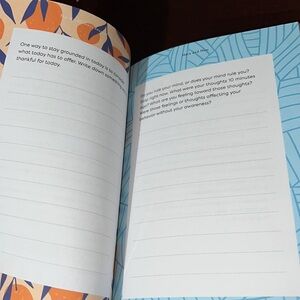 One way to stay grounded in today is to
what today has to offer. Write down
thankful for today.
you rule your mind, or does your mind rule you?
right now. What were your thoughts 10 minutes
What are you feeling toward those thoughts?
those feelings or thoughts affecting your
behavior without your awareness?